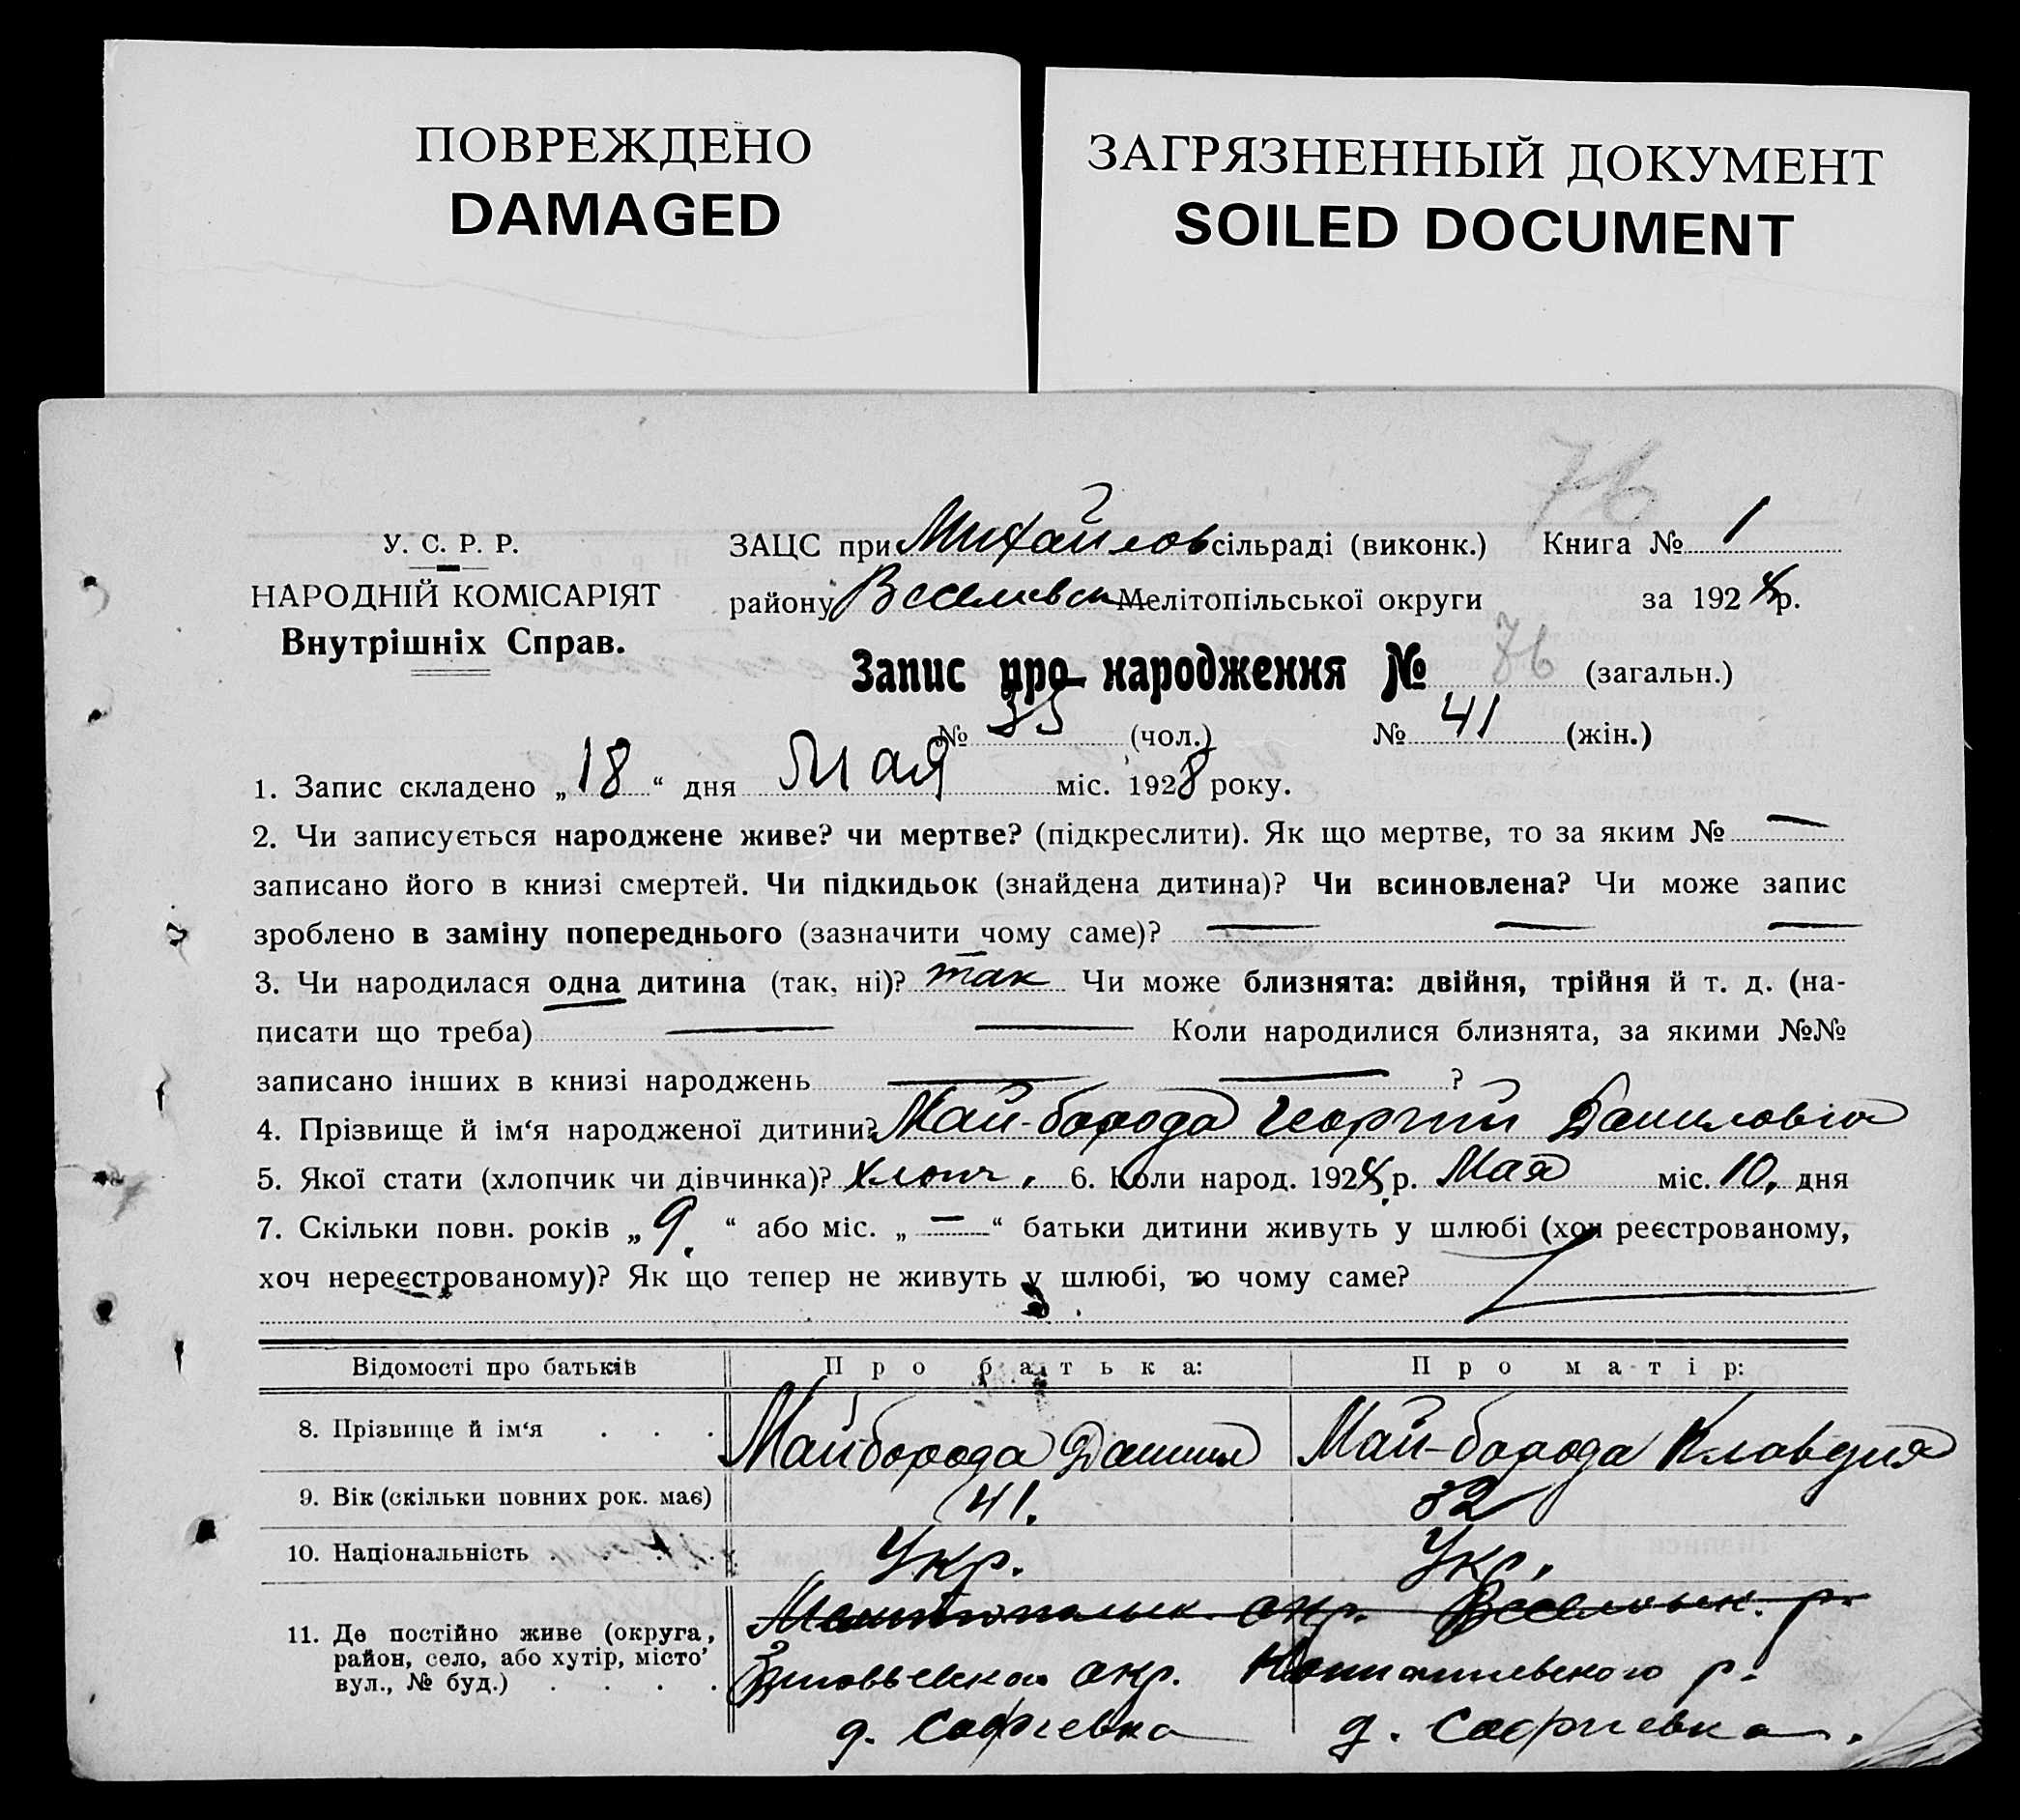 ПОВРЕЖДЕНО
DAMAGED
ЗАГРЯЗНЕННЫЙ ДОКУМЕНТ
SOILED DOCUMENT
76
У. С. Р. Р.
НАРОДНІЙ КОМІСАРІЯТ
Внутрішніх Справ.
ЗАЦС при Михайлов сільраді (виконк.) Книга № 1
району Веселівськ Мелітопільської округи за 1928 р.
Запис про народження № 76 (загальн.)
№ 35 (чол.) № 41 (жін.)
1. Запис складено „ 18 “ дня Мая міс. 1928 року.
2. Чи записується народжене живе? чи мертве? (підкреслити). Як що мертве, то за яким № —
записано його в книзі смертей. Чи підкидьок (знайдена дитина)? Чи всиновлена? Чи може запис
зроблено в заміну попереднього (зазначити чому саме)? — — —
3. Чи народилася одна дитина (так, ні)? так Чи може близнята: двійня, трійня й т. д. (на-
писати що треба) — — Коли народилися близнята, за якими №№
записано інших в книзі народжень — — ?
4. Прізвище й ім‘я народженої дитини? Май-борода Георгий Данилович
5. Якої стати (хлопчик чи дівчинка)? хлопч. 6. Коли народ. 1928 р. Мая міс. 10, дня
7. Скільки повн. років „ 9. “ або міс. „ — “ батьки дитини живуть у шлюбі (хоч реєстрованому,
хоч нереєстрованому)? Як що тепер не живуть у шлюбі, то чому саме?
Відомості про батьків Про батька: Про матір:
8. Прізвище й ім‘я . . . Майборода Данил Май-борода Клавдия
9. Вік (скільки повних рок. має) 41. 32
10. Національність . . . . Укр. Укр.
Мелитопольск. окр. Веселовск. р.
11. Де постійно живе (округа, район, село, або хутір, місто’ вул., № буд.) . . . . Зиновьевской окр. р.
д. Софиевка д. Софиевка.